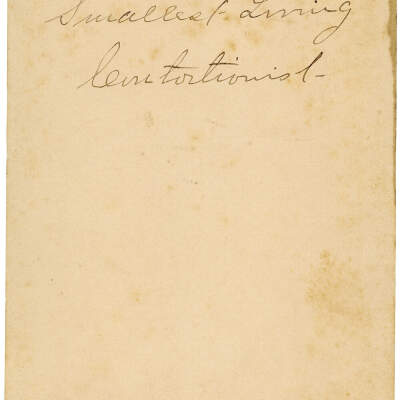 Smallest Living
Contortionist